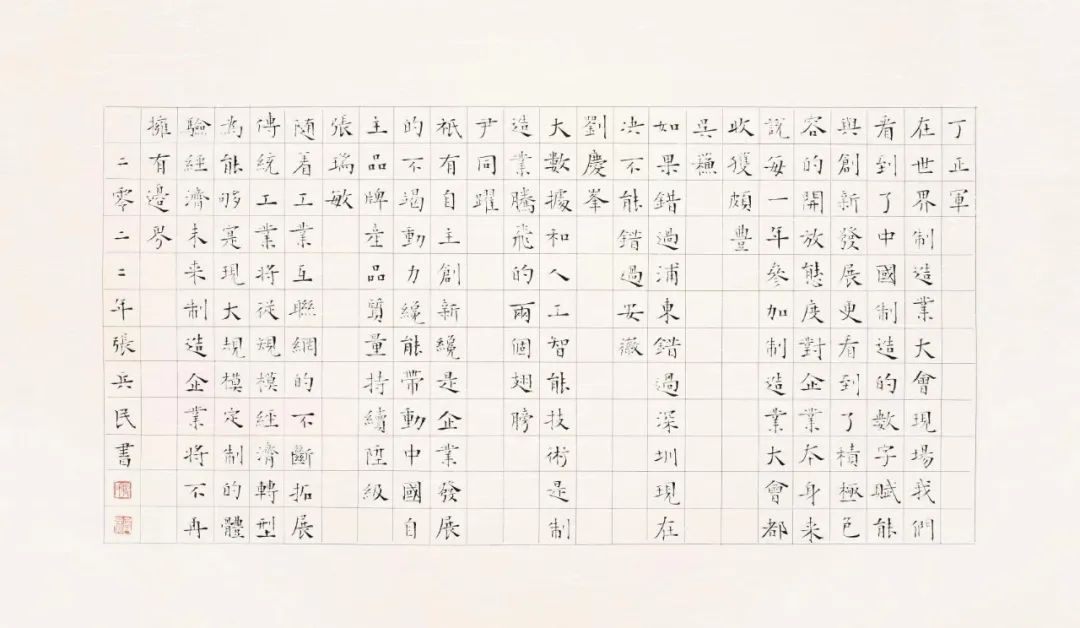 丁正軍
在世界制造業大會現場我們
看到了中國制造的數字賦能
與創新發展更有看到了積極包
容的開放態度對企業本身来
說每一年參加制造業大會都
收獲頗豐
吳
如果錯過浦東錯過深圳現在
决不能錯過安徽
劉慶峯
大數據和人工智能技術是制
造業騰飛的兩個翅膀
尹同躍
祇有自主創新纔是企業發展
的不竭動力纔能帶動中國自
主品牌產品質量持續陞級
張瑞敏
随着工業互聯網的不斷拓展
傳統工業將從規模經濟轉型
為能够寔現大規模定制的體
驗經濟未来制造企業將不再
擁有邊界
二零二二年張兵民書